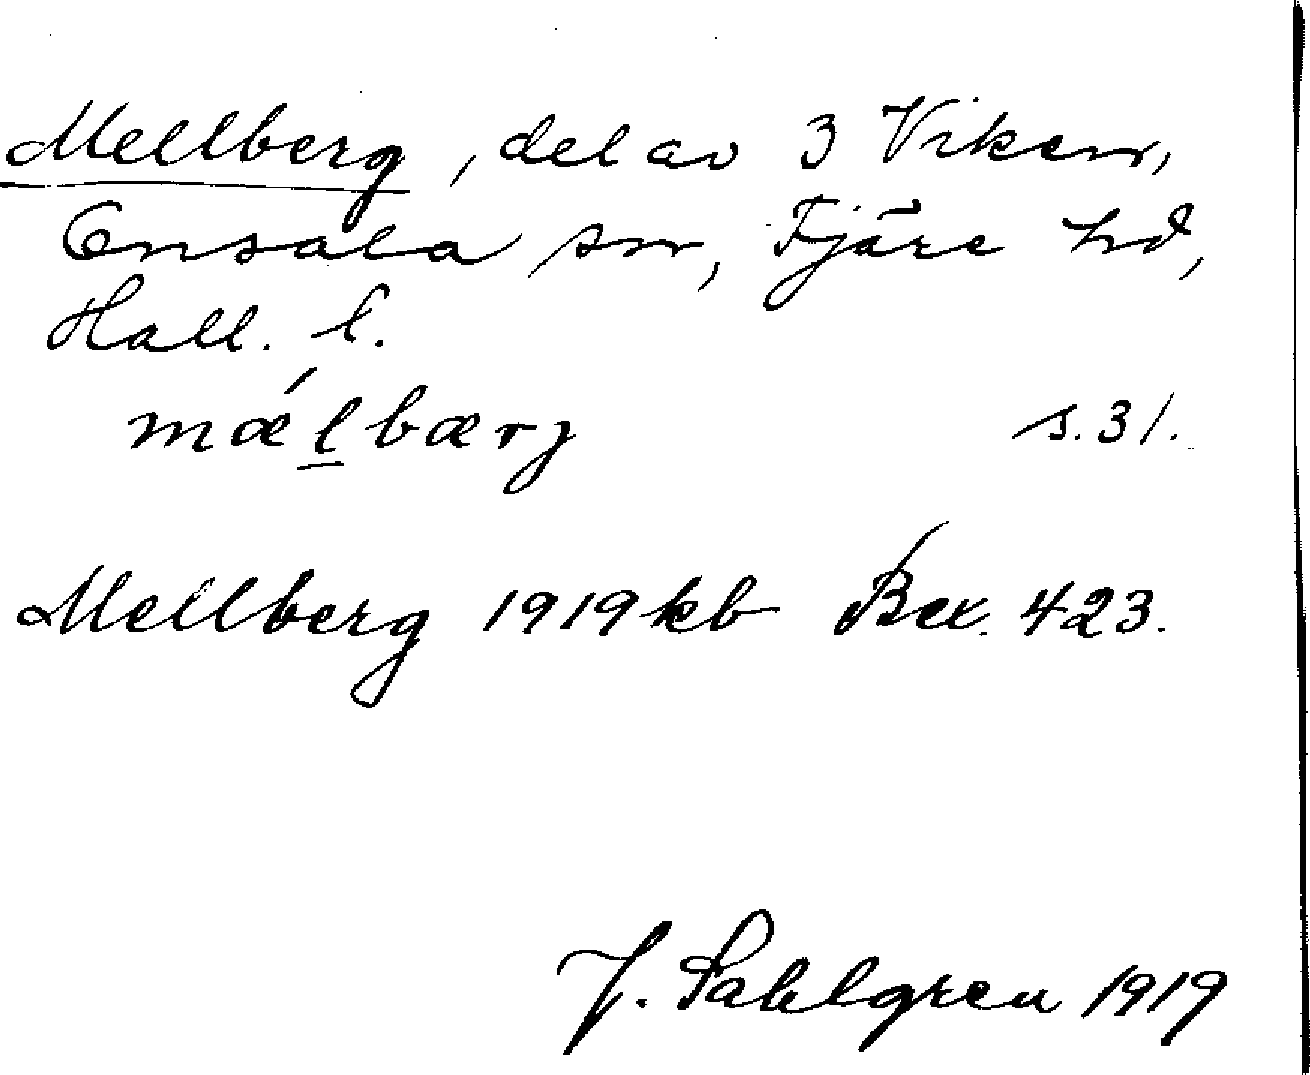 Mellberg, del av 3 Viken,
Onsala sn, Fjäre hd,
Hall. l.
mǽl̲bærj s.31.
Mellberg 1919 kb Bex. 423.
J. Sahlgren 1919